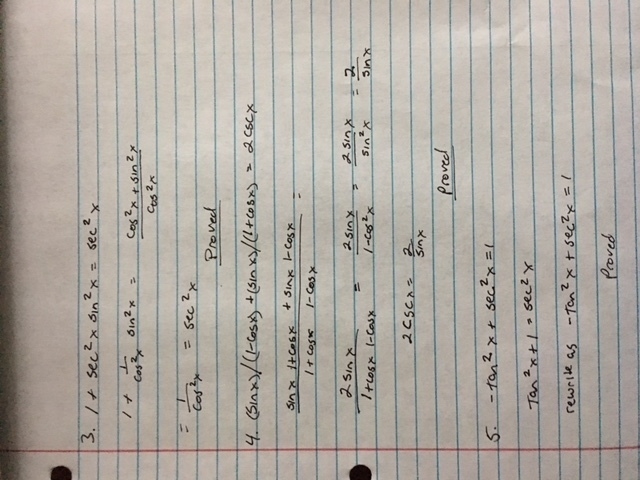 3. 1 + sec²x sin²x = sec²x
1 + 1/cos²x sin²x = cos²x + sin²x / cos²x
= 1/cos²x = sec²x
Proved
4. (sinx)/(1-cosx) + (sinx)/(1+cosx) = 2cscx
sinx 1+cosx + sinx 1-cosx / 1+cosx 1-cosx =
2sinx / 1+cosx 1-cosx = 2sinx / 1-cos²x = 2sinx / sin²x = 2/sinx
2cscx = 2/sinx
Proved
5. -tan²x + sec²x = 1
Tan²x + 1 = sec²x
rewrite as -tan²x + sec²x = 1
Proved